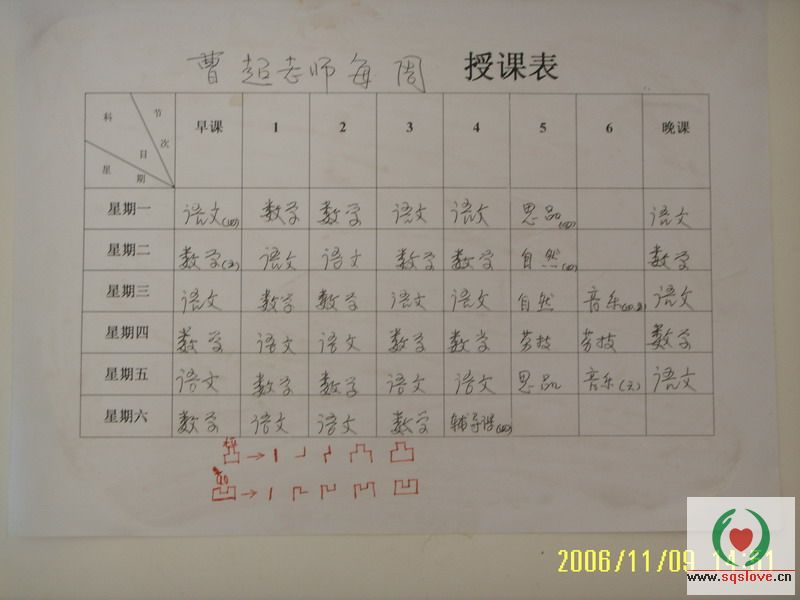 曹超老师每周 授课表
科 目 节 次 星 期 早课 1 2 3 4 5 6 晚课
星期一 语文 数学 数学 语文 语文 思品 语文
星期二 数学 语文 语文 数学 数学 自然 数学
星期三 语文 数学 数学 语文 语文 自然 音乐 语文
星期四 数学 语文 语文 数学 数学 劳技 劳技 数学
星期五 语文 数学 数学 语文 语文 思品 音乐 语文
星期六 数学 语文 语文 数学 辅导课
2006/11/09
www.sqslove.cn